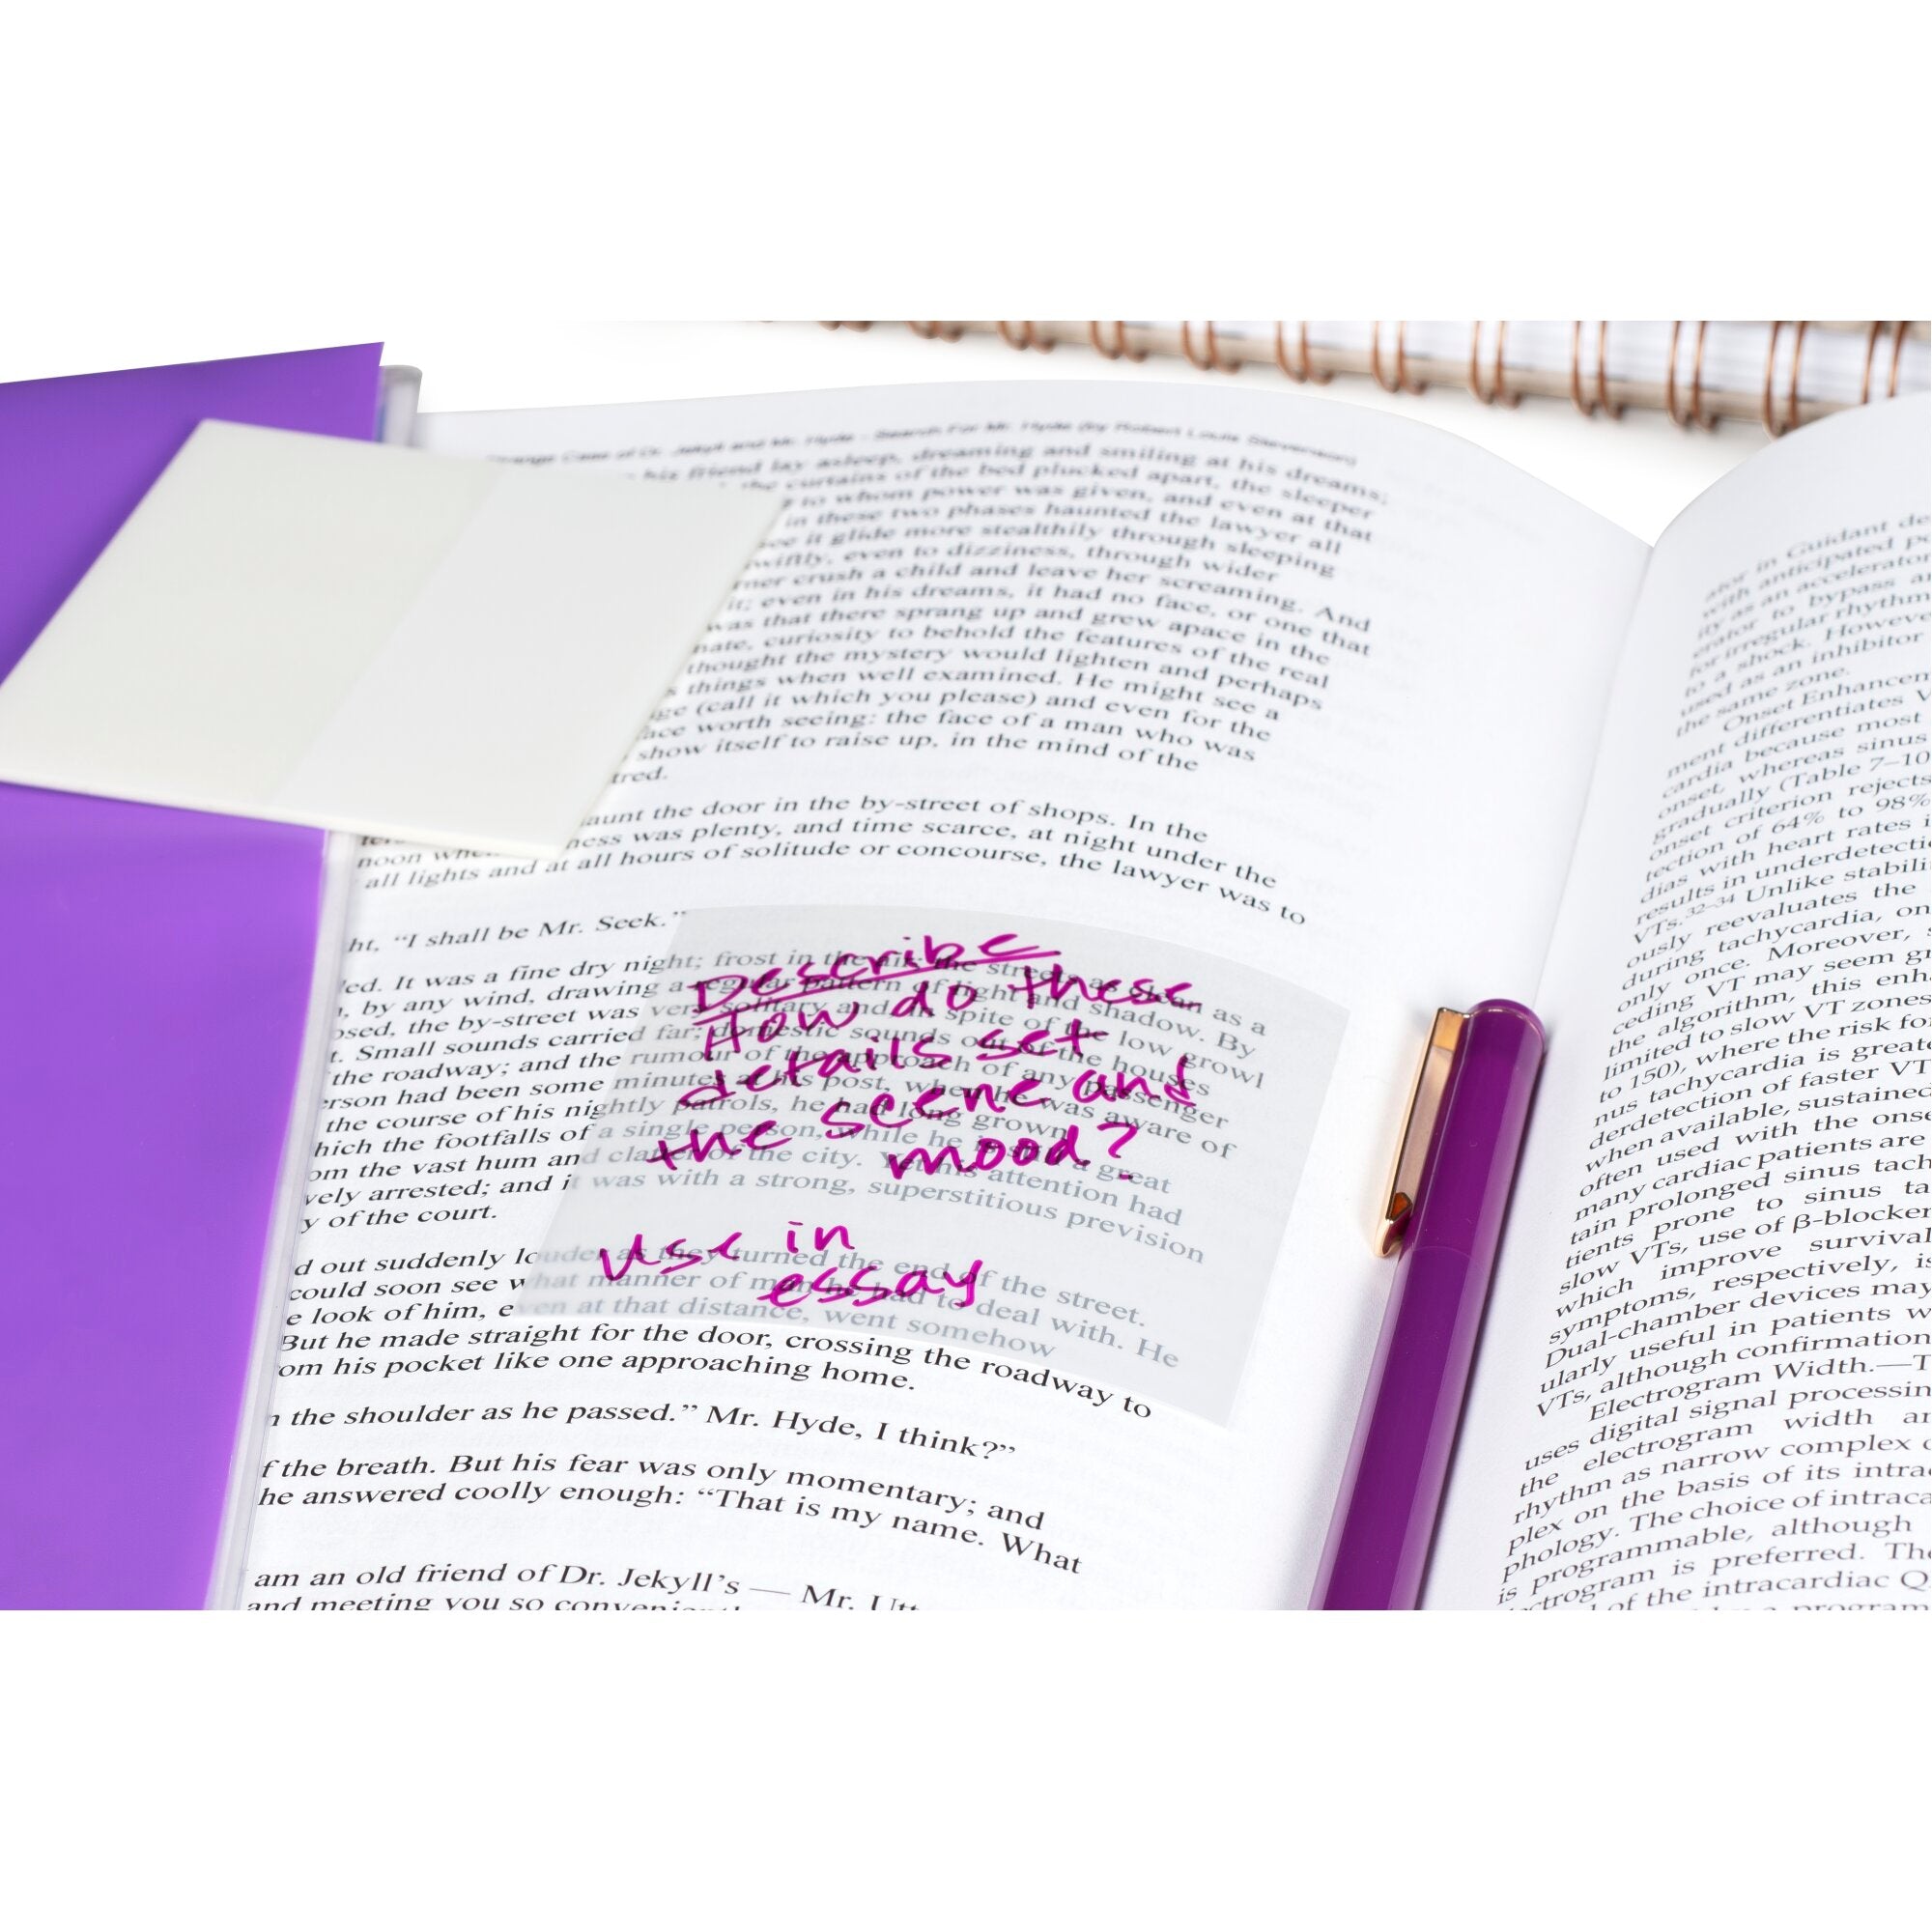 Strange Case of Dr. Jekyll and Mr. Hyde - Search For Mr. Hyde (by Robert Louis Stevenson)
his friend lay asleep, dreaming and smiling at his dreams;
the curtains of the bed plucked apart, the sleeper
to whom power was given, and even at that
in these two phases haunted the lawyer all
see it glide more stealthily through sleeping
wiftly, even to dizziness, through wider
ner crush a child and leave her screaming. And
it; even in his dreams, it had no face, or one that
was that there sprang up and grew apace in the
nate, curiosity to behold the features of the real
thought the mystery would lighten and perhaps
s things when well examined. He might see a
ge (call it which you please) and even for the
ace worth seeing: the face of a man who was
show itself to raise up, in the mind of the
tred.
aunt the door in the by-street of shops. In the
noon when ness was plenty, and time scarce, at night under the
all lights and at all hours of solitude or concourse, the lawyer was to
ht, “I shall be Mr. Seek.”
ed. It was a fine dry night; frost in the air; the streets as clean as a
, by any wind, drawing a regular pattern of light and shadow. By
osed, the by-street was very solitary and in spite of the low growl
t. Small sounds carried far; domestic sounds out of the houses
the roadway; and the rumour of the approach of any passenger
erson had been some minutes at his post, when he was aware of
the course of his nightly patrols, he had long grown
hich the footfalls of a single person, while he is still a great
om the vast hum and clatter of the city. Yet his attention had
vely arrested; and it was with a strong, superstitious prevision
y of the court.
d out suddenly louder as they turned the end of the street.
could soon see what manner of man he had to deal with. He
e look of him, even at that distance, went somehow
But he made straight for the door, crossing the roadway to
om his pocket like one approaching home.
n the shoulder as he passed.” Mr. Hyde, I think?”
f the breath. But his fear was only momentary; and
he answered coolly enough: “That is my name. What
am an old friend of Dr. Jekyll’s — Mr. Utt
and meeting you so convenient
Describe
How do these
details set
the scene and
mood?
use in
essay
ator in Guidant de
with anticipated p
ity as an accelerator
erator to bypass a
for irregular rhythm
to a shock. Howeve
used as an inhibitor
the same zone.
Onset Enhancen
ment differentiates V
cardia because most
onset, whereas sinus
gradually (Table 7–10
onset criterion rejects
tection of 64% to 98%
dias with heart rates i
results in underdetecti
VTs.32–34 Unlike stabili
ously reevaluates the
during tachycardia, on
only once. Moreover, s
ceding VT may seem gr
the algorithm, this enha
limited to slow VT zones
to 150), where the risk fo
nus tachycardia is greate
derdetection of faster VT
when available, sustained
often used with the onse
many cardiac patients are
tain prolonged sinus tach
tients prone to sinus ta
slow VTs, use of β-blocker
which improve surviva
symptoms, respectively, is
Dual-chamber devices may
ularly useful in patients w
VTs, although confirmation
Electrogram Width.—T
uses digital signal processin
the electrogram width a
rhythm as narrow complex o
plex on the basis of its intra
phology. The choice of intraca
is programmable, although
ectrogram is preferred. The
of the intracardiac Q
program